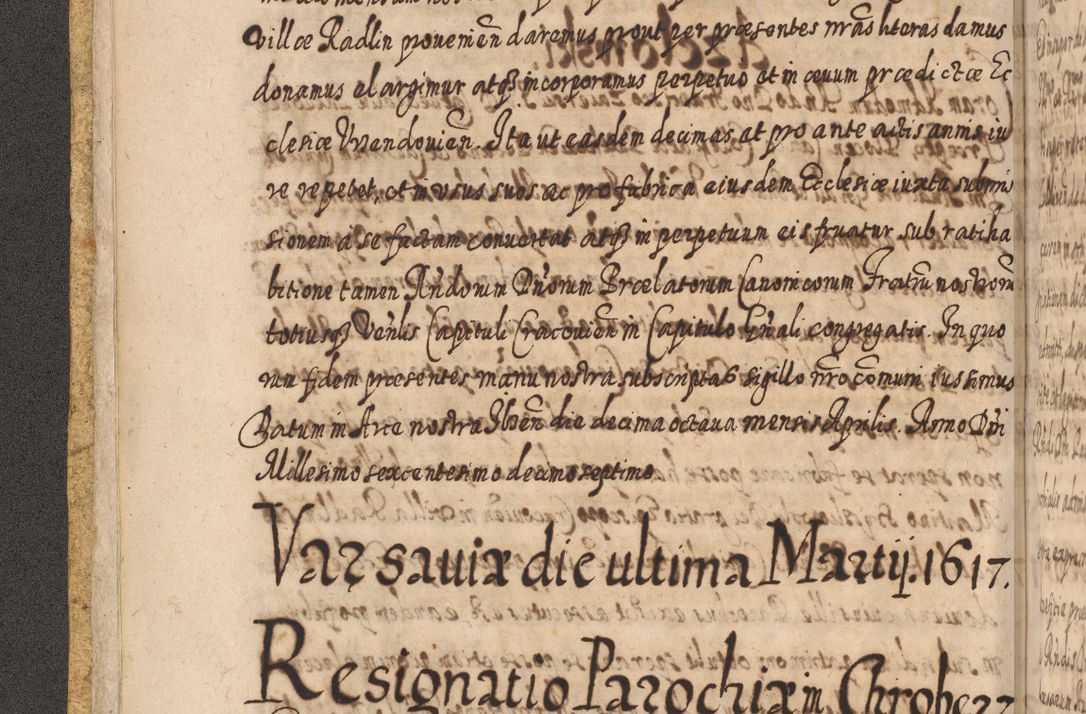 villæ Radlin provenień daremus prout per præsentes nr̃as literas damus
donamus elargimur atq3 incorporamus perpetuo et in ævum prædictæ Ec
clesiæ Vzendovień. Ita ut easdem decimas at pro ante actis annis iu
re repetet, et in vsus suos ac pro fabrica eiusdem Ecclesiæ iuxta submis
sionem a se factam convertat atq3 in perpetuum eis fruatur sub ratiha
bitione tamen Rńdorum Dńorum Prælatorum Canonicorum Fratrũ nostrorũ
totiusq3 Venlis Capituli Cracovień in Capitulo Gńali congregatis. In quo
rum fidem præsentes manu nostra subscriptas sigillo nr̃o cõmuni iussimus
Datum in Arce nostra Ilzeń die decima octava mensis Aprilis. Anno Dńi
Millesimo sexcentesimo decimo septimo
Varsaviæ die ultima Martij. 1617.
Resignatio Parochiæ in Chroberz